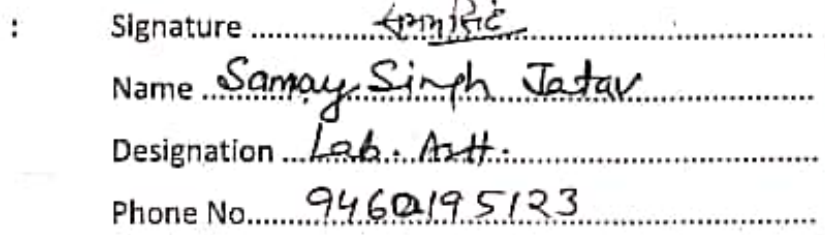 : Signature
Name Samay Singh Jatav
Designation Lab. Astt.
Phone No. 9460195123